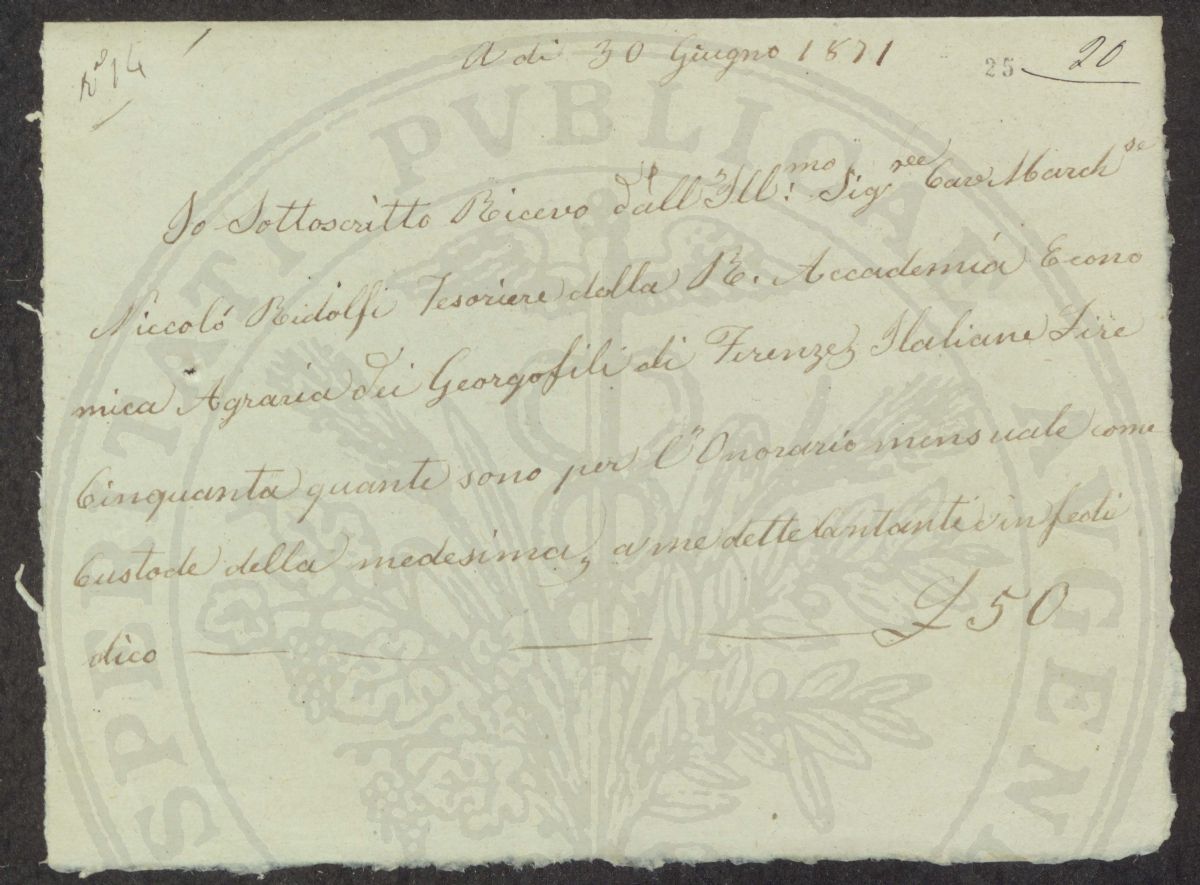 N° 14
A di 30 Giugno 1871
25 20
Io Sottoscritto Ricevo dall'Ill:mo Sigree Cav. Marchse
Niccoló Ridolfi Tesoriere della R. Accademiá Econo
mica Agraria dei Georgofili di Firenze, Italiane Lire
Cinquanta quante sono per l'Onorario mensuale come
Custode della medesima, a me dette Contanti in fedi
dico £ 50
PROSPERITATI PVBLICAE AVGEN